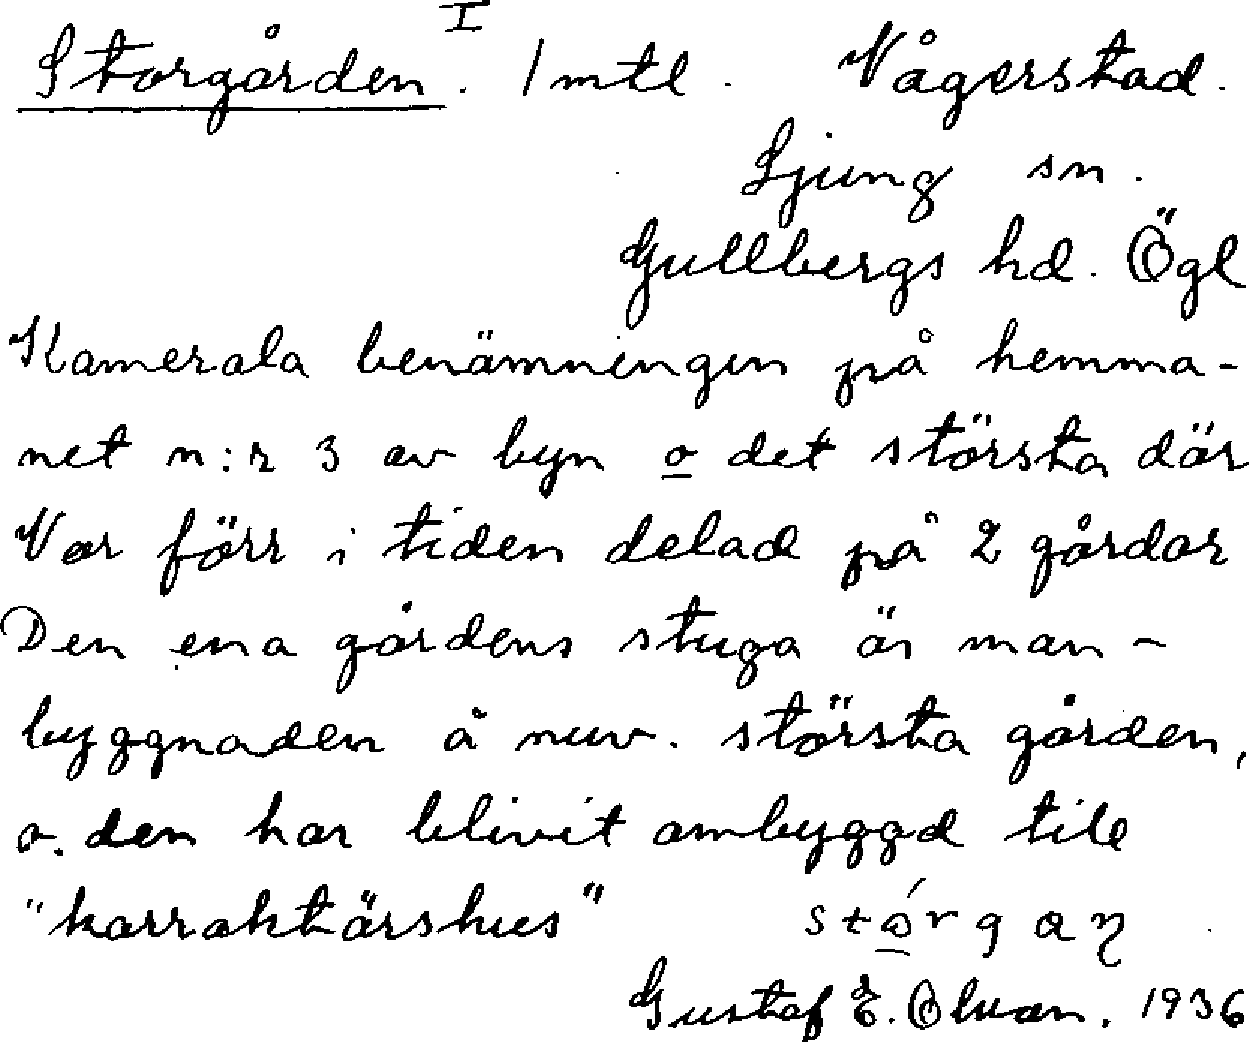 I
Storgården. 1 mtl. Vågerstad.
Ljung sn.
Gullbergs hd. Ögl
Kamerala benämningen på hemma-
net n:r 3 av byn o det största där
Var förr i tiden delad på 2 gårdar
Den ena gårdens stuga är man-
byggnaden å nuv. största gården,
o. den har blivit ombyggd till
"karraktärshus" stórgaη
Gustaf E. 1936